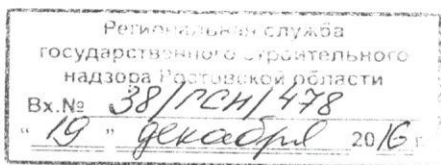 Региональная служба
государственного строительного
надзора Ростовской области
Вх.№ 38/ГСН/478
" 19 " декабря 2016 г